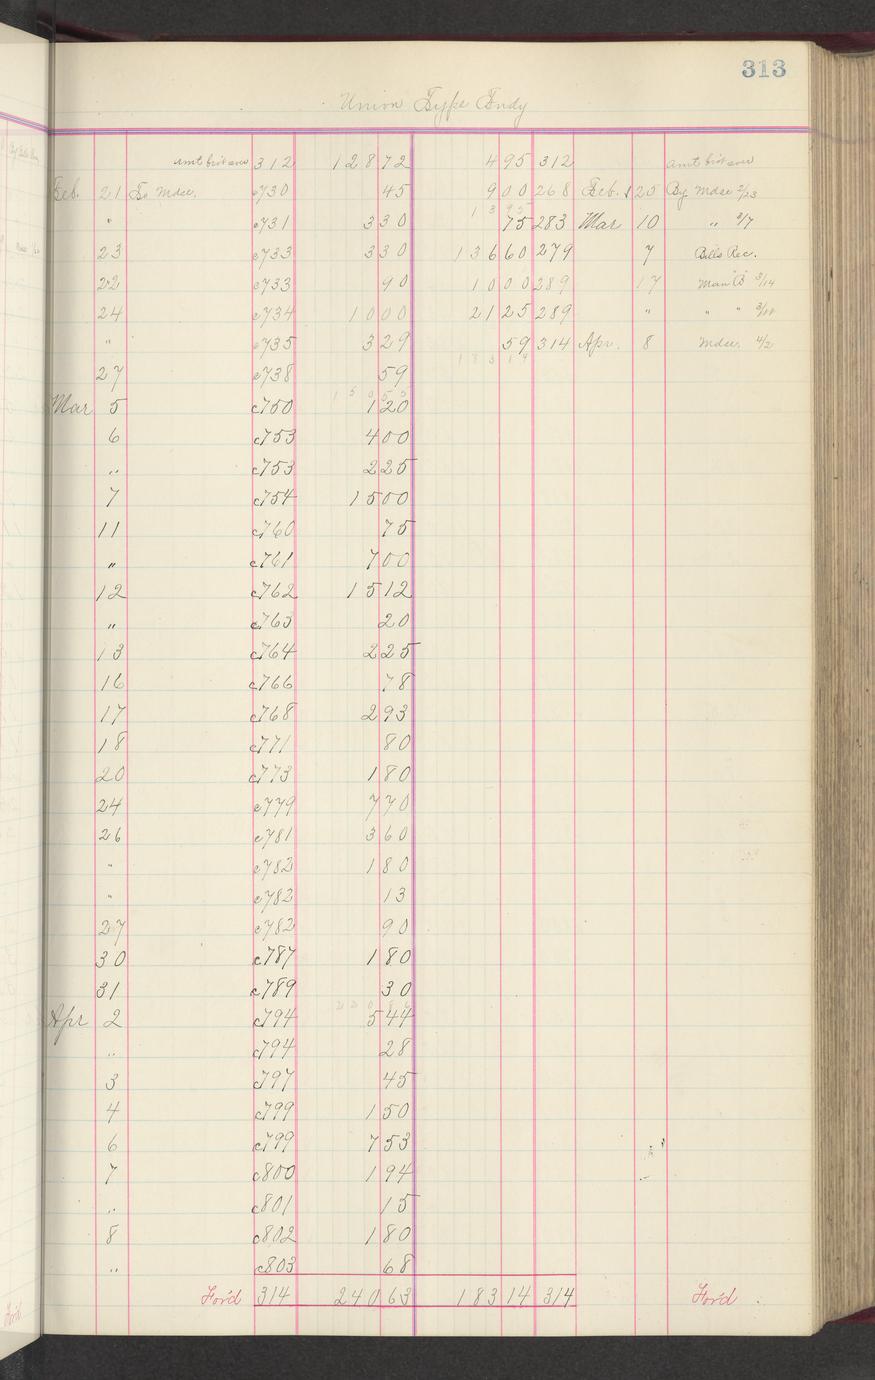 313
Union Type Fndy
amt brot over 312 128 72 4 95 312 amt brot over
Feb. 21 To Mdse. c730 45 9 00 268 Feb. 25 By Mdse 2/23
" c731 3 30 75 283 Mar 10 " 3/7
23 c733 3 30 136 60 279 7 Bills Rec.
22 c733 90 10 00 289 17 Man "B" 3/14
24 c734 10 00 21 25 289 " " "
" c735 3 29 59 314 Apr. 8 Mdse. 4/2
183 14
27 c738 59
Mar 5 c750 1 20
6 c753 4 00
" c753 2 25
7 c754 15 00
11 c760 75
" c761 7 00
12 c762 15 12
" c763 20
13 c764 2 25
16 c766 78
17 c768 2 93
18 c771 80
20 c773 1 80
24 c779 7 70
26 c781 3 60
" c782 1 80
" c782 13
27 c782 90
30 c787 1 80
31 c789 30
Apr 2 c794 5 44
" c794 28
3 c797 45
4 c799 1 50
6 c799 7 53
7 c800 1 94
" c801 15
8 c802 1 80
" c803 68
For'd 314 240 63 183 14 314 For'd